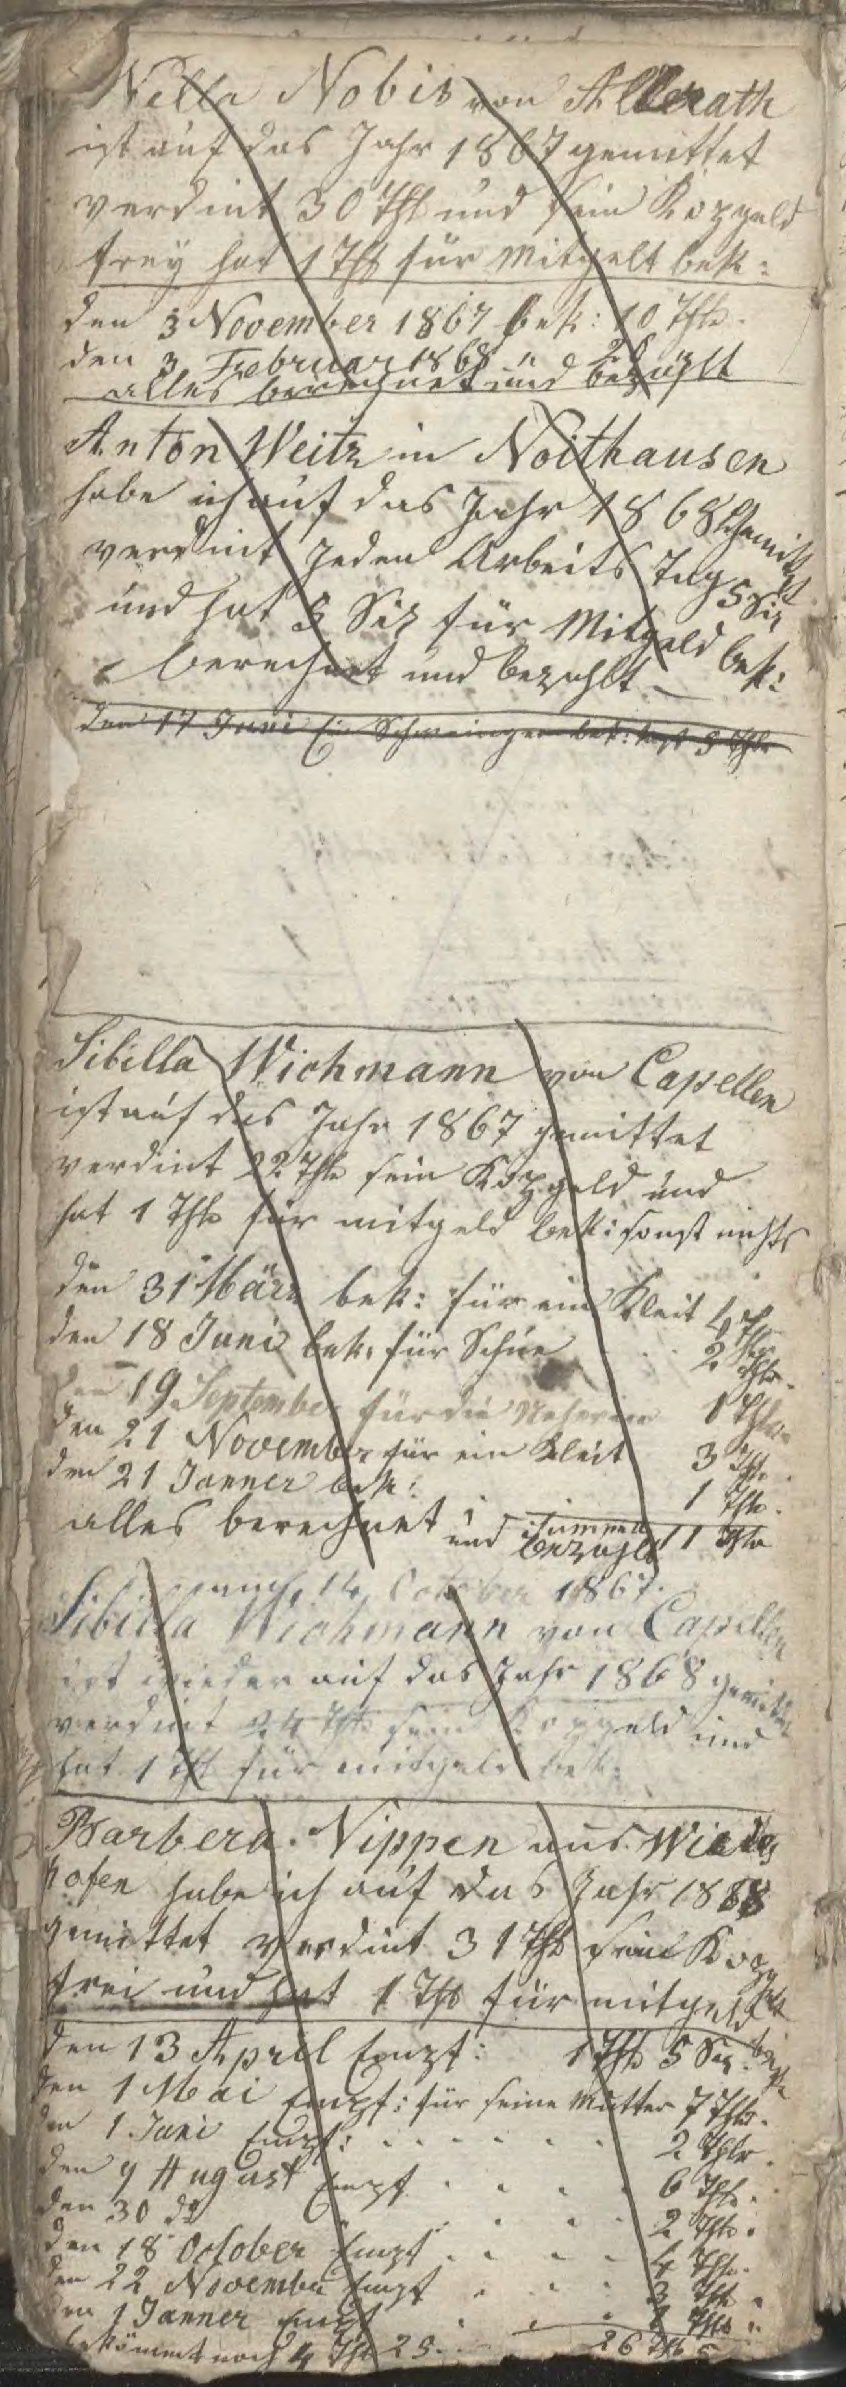 Nella Nobis von Allerath
ist auf das Jahr 1867 gemittet
verdint 30 Thl und sein Kopgeld
frey hat 1 Thl für Mitgelt bek:
den 3 November 1867 bek: 10 Thlr.
den 3 Februar 1868 " " 20
alles berechnet und bezahlt
Anton Weitz in Noithausen
habe ich auf das Jahr 1868 gemittet
verdint jeden Arbeits Tag 5 Sgr
und hat 5 Sgr für Mitgeld bek:
berechnet und bezahlt
den 17 Juni Ein Schweingen bek: 3 Thlr
Sibilla Wichmann von Capellen
ist auf das Jahr 1867 gemittet
verdint 22 Thlr sein Kopgeld und
hat 1 Thlr für mitgeld bek: sonst nichts
den 31 März bek: für ein Kleit 4 Thlr
den 18 Juni bek: für Schue 2 Thlr.
den 19 September für die Neherin 1 Thlr
den 21 November für ein Kleit 3 Thlr.
den 21 Janner bek: 1 Thlr.
alles berechnet und bezahlt Summe 11 Thlr
14 October 1867.
Sibilla Wichmann von Capellen
ist wieder auf das Jahr 1868 gemittet
verdint 24 Thlr sein Kopgeld und
hat 1 Thl für mitgeld bek:
Barbera Nippen aus
hofen habe ich auf das Jahr 1868
gemittet verdint 31 Thl sein Kopgelt
frei und hat 1 Thl für mitgeld bek
den 13 April Empf: 1 Thlr 5 Sgr.
den 1 Mai Empf: für seine Mutter 7 Thlr.
den 1 Juni Empf: . . . . . . 2 Thlr.
den 9 August Empf . . . . 6 Thlr.
den 30 do . . . 2 Thlr.
den 18 October Empf . . . . 4 Thlr.
den 22 November Empf . . . 3 Thlr.
den 1 Janner Empf . . . 1 Thlr.
bekömmt noch 4 Thl 25. 26 Thl 5